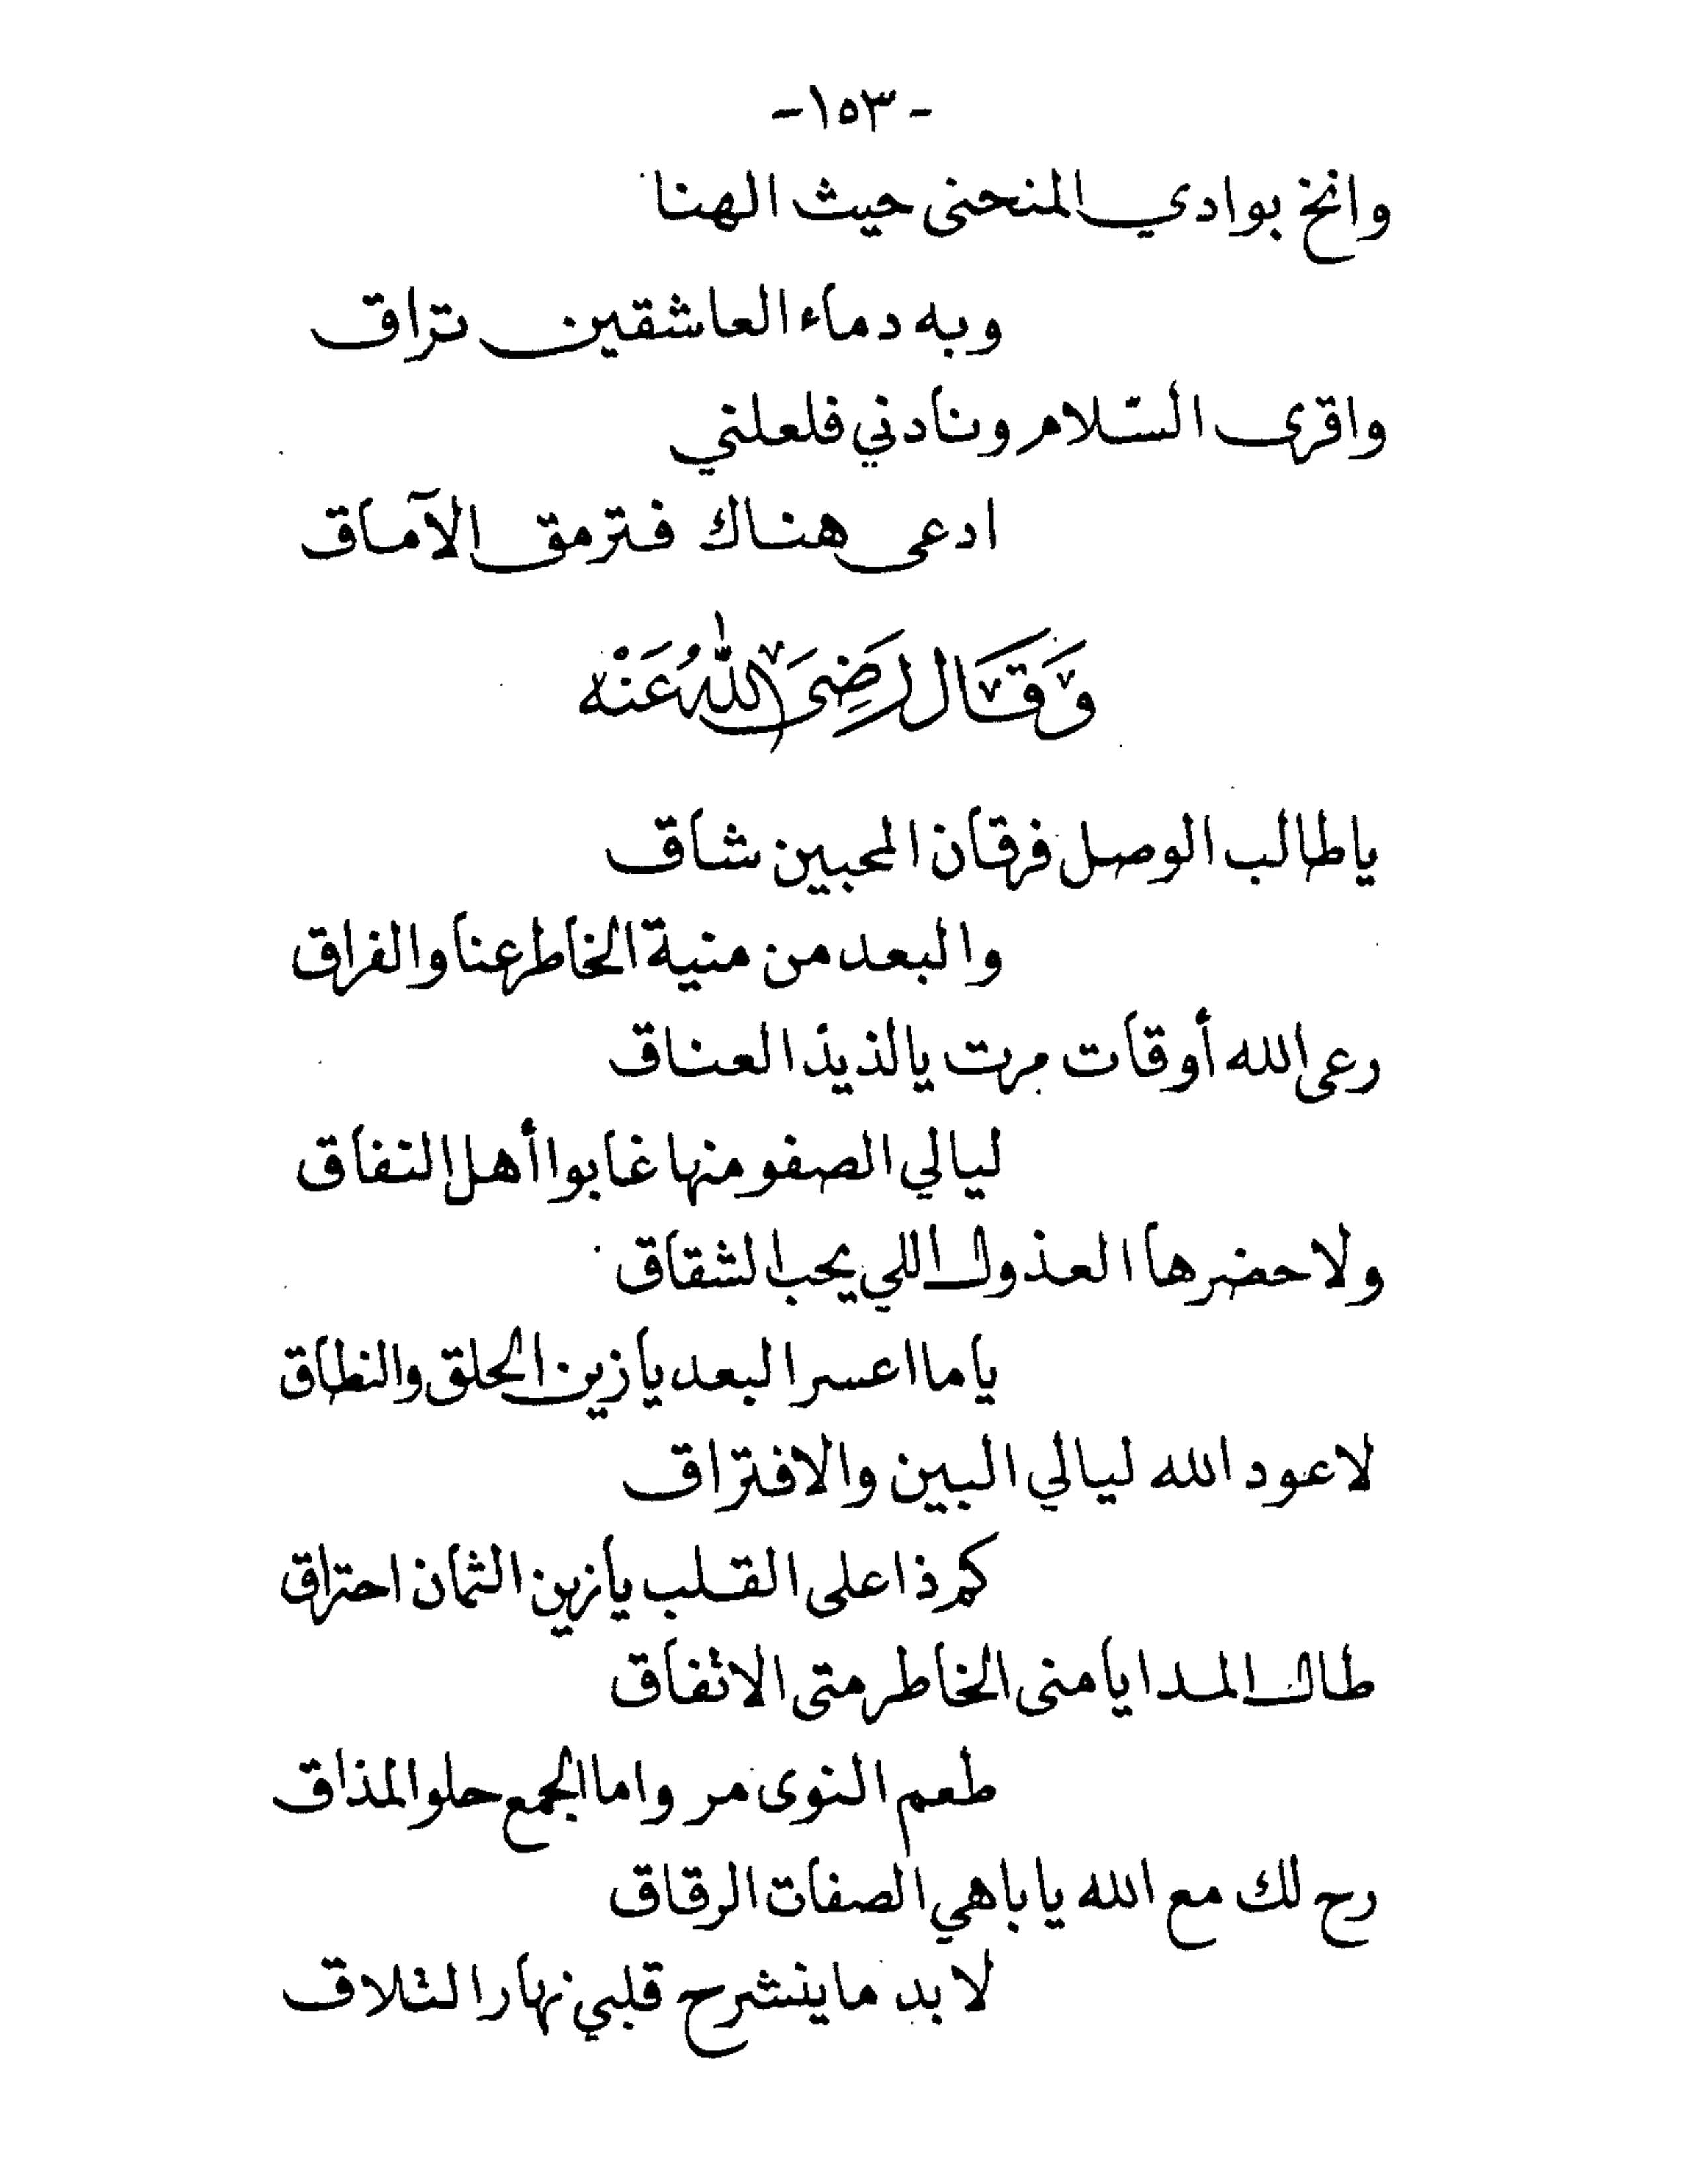 -١٥٣-
وانخ بوادي المنحنى حيث الهنا
وبه دماء العاشقين تراق
واقرى السّلام ونادني فلعلني
ادعى هناك فترمق الآماق
وَقَال رَضِىَ اللهُ عَنْه
يا طالب الوصل فرقان المحبين شاق
والبعد من منية الخاطر عنا والفراق
رعى الله أوقات مرت يا لذيذ العناق
ليالي الصفو منها غابوا أهل النفاق
ولا حضرها العذول اللي يحب الشقاق
ياما اعسر البعد يا زين الحلق والنطاق
لا عود الله ليالي البين والافتراق
كم ذا على القلب يا زين الثمان احتراق
طال المدا يا منى الخاطر متى الاتفاق
طعم النوى مر واما الجمع حلو المذاق
رح لك مع الله يا باهي الصفات الرقاق
لا بد ما ينشرح قلبي نهار التلاق